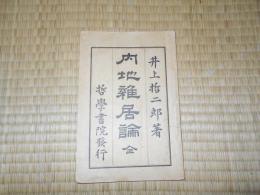 井上哲二郎著
内地雜居論 全
哲學書院發行